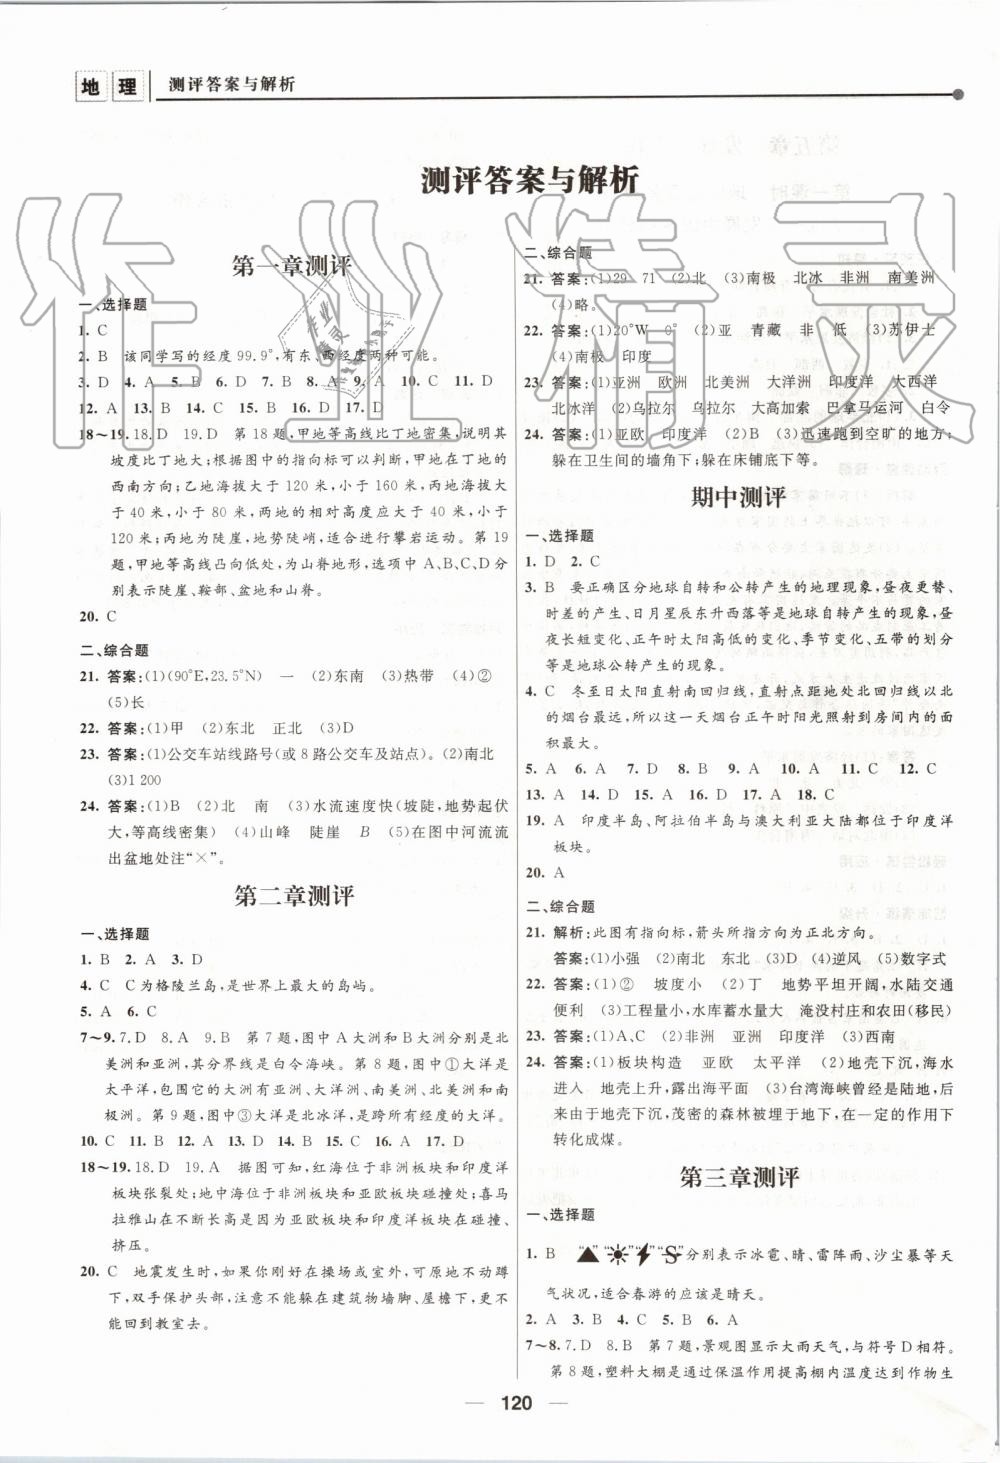 地理 测评答案与解析
测评答案与解析
第一章测评
一、选择题
1. C
2. B 该同学写的经度 99.9°,有东、西经度两种可能。
3. D 4. A 5. B 6. B 7. D 8. D 9. A 10. C 11. D
12. A 13. B 14. C 15. B 16. D 17. D
18～19. 18. D 19. D 第 18 题,甲地等高线比丁地密集,说明其
坡度比丁地大;根据图中的指向标可以判断,甲地在丁地的
西南方向;乙地海拔大于 120 米,小于 160 米,丙地海拔大
于 40 米,小于 80 米,两地的相对高度应大于 40 米,小于
120 米;丙地为陡崖,地势陡峭,适合进行攀岩运动。第 19
题,甲地等高线凸向低处,为山脊地形,选项中 A、B、C、D 分
别表示陡崖、鞍部、盆地和山脊。
20. C
二、综合题
21. 答案:(1)(90°E,23.5°N) 一 (2)东南 (3)热带 (4)②
(5)长
22. 答案:(1)甲 (2)东北 正北 (3)D
23. 答案:(1)公交车站线路号(或 8 路公交车及站点)。(2)南北
(3)1 200
24. 答案:(1)B (2)北 南 (3)水流速度快(坡陡,地势起伏
大,等高线密集) (4)山峰 陡崖 B (5)在图中河流流
出盆地处注“×”。
第二章测评
一、选择题
1. B 2. A 3. D
4. C C 为格陵兰岛,是世界上最大的岛屿。
5. A 6. C
7～9. 7. D 8. A 9. B 第 7 题,图中 A 大洲和 B 大洲分别是北
美洲和亚洲,其分界线是白令海峡。第 8 题,图中①大洋是
太平洋,包围它的大洲有亚洲、大洋洲、南美洲、北美洲和南
极洲。第 9 题,图中③大洋是北冰洋,是跨所有经度的大洋。
10. C 11. B 12. A 13. D 14. D 15. C 16. A 17. D
18～19. 18. D 19. A 据图可知,红海位于非洲板块和印度洋
板块张裂处;地中海位于非洲板块和亚欧板块碰撞处;喜马
拉雅山在不断长高是因为亚欧板块和印度洋板块在碰撞、
挤压。
20. C 地震发生时,如果你刚好在操场或室外,可原地不动蹲
下,双手保护头部,注意不能躲在建筑物墙脚、屋檐下,更不
能回到教室去。
二、综合题
21. 答案:(1)29 71 (2)北 (3)南极 北冰 非洲 南美洲
(4)略。
22. 答案:(1)20°W 0° (2)亚 青藏 非 低 (3)苏伊士
(4)南极 印度
23. 答案:(1)亚洲 欧洲 北美洲 大洋洲 印度洋 大西洋
北冰洋 (2)乌拉尔 乌拉尔 大高加索 巴拿马运河 白令
24. 答案:(1)亚欧 印度洋 (2)B (3)迅速跑到空旷的地方;
躲在卫生间的墙角下;躲在床铺底下等。
期中测评
一、选择题
1. D 2. C
3. B 要正确区分地球自转和公转产生的地理现象,昼夜更替、
时差的产生、日月星辰东升西落等是地球自转产生的现象,昼
夜长短变化、正午时太阳高低的变化、季节变化、五带的划分
等是地球公转产生的现象。
4. C 冬至日太阳直射南回归线,直射点距地处北回归线以北
的烟台最远,所以这一天烟台正午时阳光照射到房间内的面
积最大。
5. A 6. A 7. D 8. B 9. A 10. A 11. C 12. C
13. A 14. D 15. D 16. B 17. A 18. C
19. A 印度半岛、阿拉伯半岛与澳大利亚大陆都位于印度洋
板块。
20. A
二、综合题
21. 解析:此图有指向标,箭头所指方向为正北方向。
答案:(1)小强 (2)南北 东北 (3)D (4)逆风 (5)数字式
22. 答案:(1)② 坡度小 (2)丁 地势平坦开阔,水陆交通
便利 (3)工程量小,水库蓄水量大 淹没村庄和农田(移民)
23. 答案:(1)A,C (2)非洲 亚洲 印度洋 (3)西南
24. 答案:(1)板块构造 亚欧 太平洋 (2)地壳下沉,海水
进入 地壳上升,露出海平面 (3)台湾海峡曾经是陆地,后
来由于地壳下沉,茂密的森林被埋于地下,在一定的作用下
转化成煤。
第三章测评
一、选择题
1. B “▲”“☀”“⚡”“S”分别表示冰雹、晴、雷阵雨、沙尘暴等天
气状况,适合春游的应该是晴天。
2. A 3. B 4. C 5. B 6. A
7～8. 7. D 8. B 第 7 题,景观图显示大雨天气,与符号 D 相符。
第 8 题,塑料大棚是通过保温作用提高棚内温度达到作物生
120
作业精灵
作业精灵